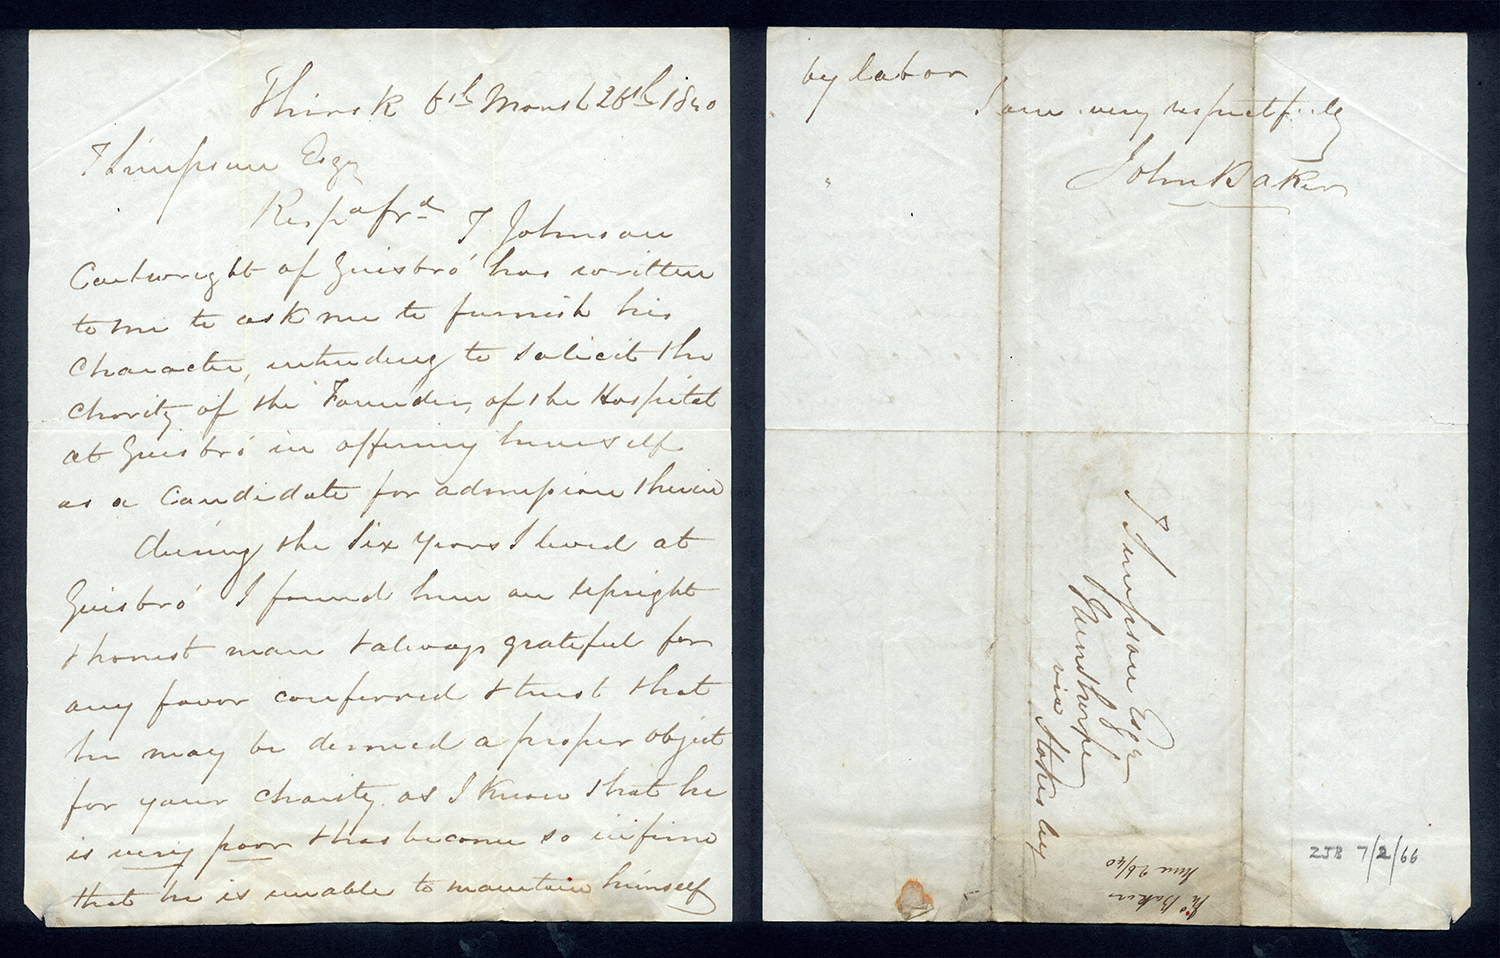 Thirsk 6th Month 26th 1840
T Simpson Esqr
Respd frd T Johnson
Cartwright of Guisbro' has written
to me to ask me to furnish his
Character, intending to solicit the
Charity of the Founder, of the Hospital
at Guisbro' in offering himself
as a Candidate for admission therein
during the Six Years I lived at
Guisbro' I found him an upright
& honest man & always grateful for
any favor conferred & trust that
he may be deemed a proper object
for your charity as I know that he
is very poor & has become so infirm
that he is unable to maintain himself
by labor
I am very respectfully
John Baker
T Simpson Esqr
Nunthorpe
via Stokesley
Jno Baker
June 26/40
ZJB 7/2/66